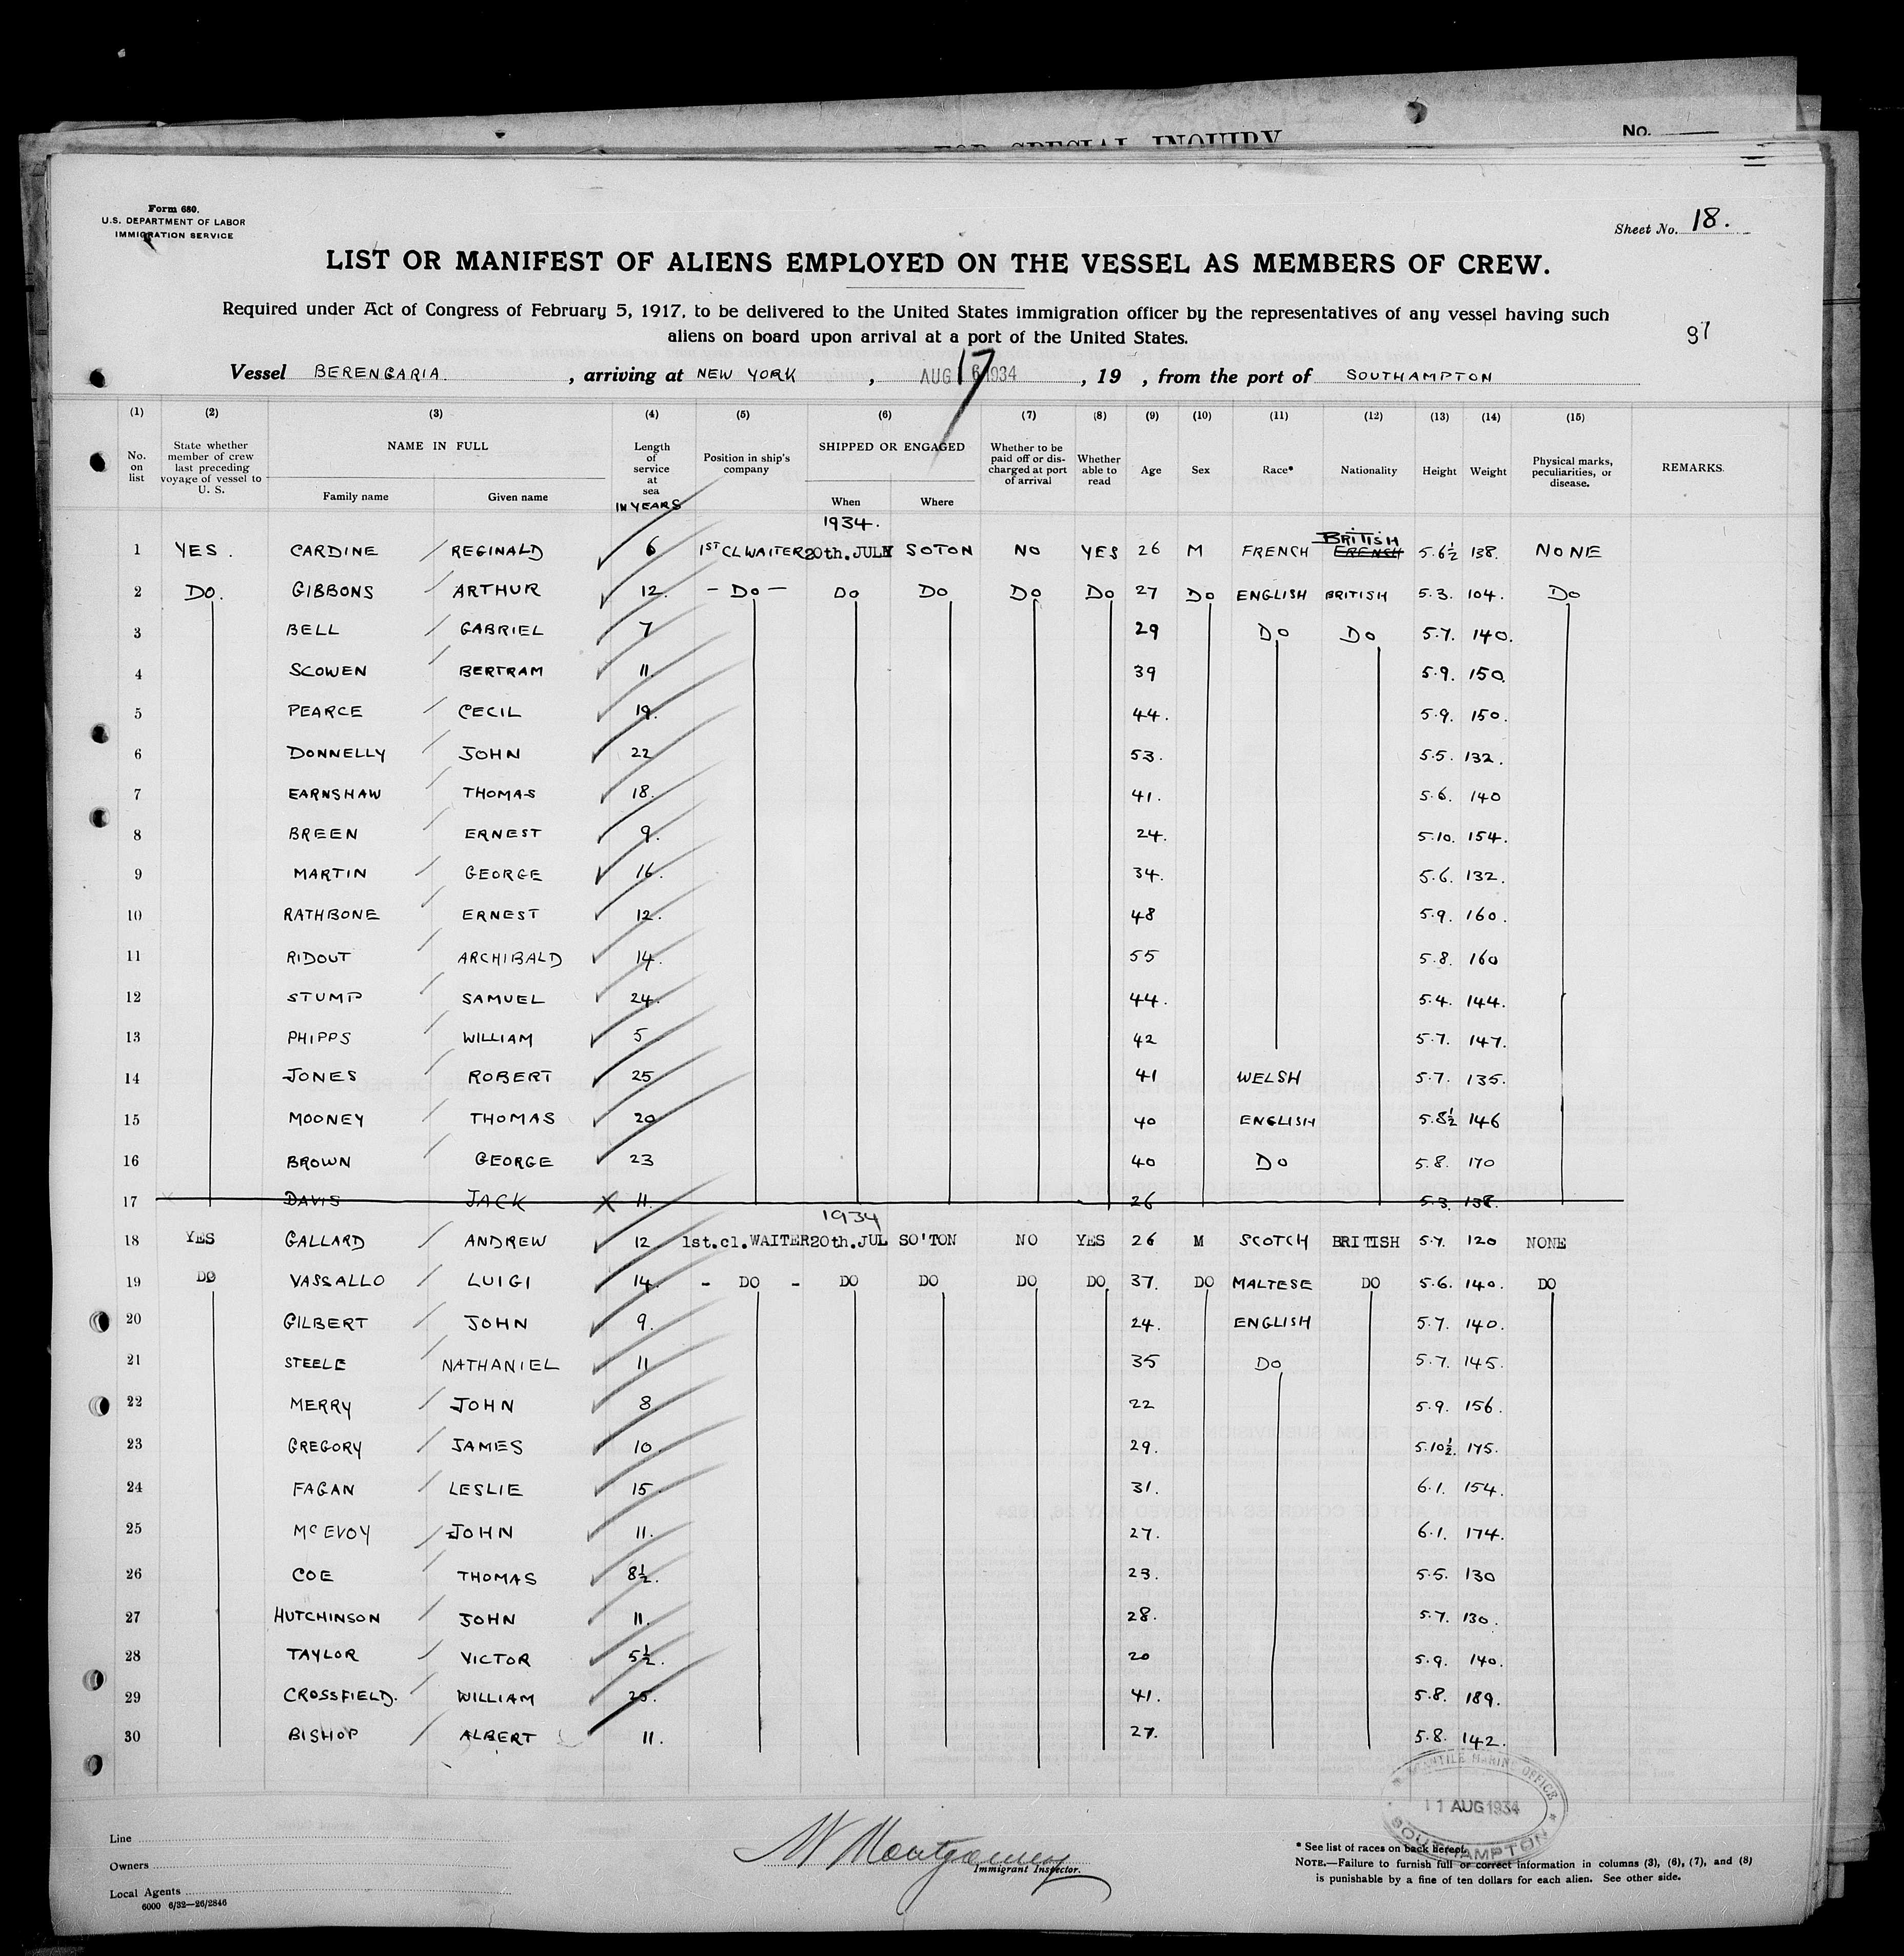 FOR SPECIAL INQUIRY
No.
Form 680.
U.S. DEPARTMENT OF LABOR
IMMIGRATION SERVICE
Sheet No. 18.
LIST OR MANIFEST OF ALIENS EMPLOYED ON THE VESSEL AS MEMBERS OF CREW.
Required under Act of Congress of February 5, 1917, to be delivered to the United States immigration officer by the representatives of any vessel having such
aliens on board upon arrival at a port of the United States.
97
Vessel BERENGARIA. , arriving at NEW YORK , AUG 16 1934 17 , 19 , from the port of SOUTHAMPTON
(1) (2) (3) (4) (5) (6) (7) (8) (9) (10) (11) (12) (13) (14) (15)
No. on list
State whether member of crew last preceding voyage of vessel to U. S.
NAME IN FULL
Family name Given name
Length of service at sea IN YEARS
Position in ship's company
SHIPPED OR ENGAGED
When Where
Whether to be paid off or discharged at port of arrival
Whether able to read
Age Sex Race* Nationality Height Weight
Physical marks, peculiarities, or disease.
REMARKS.
1934.
1 YES. CARDINE REGINALD 6 1ST CL WAITER 20th. JULY SOTON NO YES 26 M FRENCH FRENCH BRITISH 5.6½ 138. NONE
2 DO. GIBBONS ARTHUR 12. – DO – DO DO DO DO 27 DO ENGLISH BRITISH 5.3. 104. DO
3 BELL GABRIEL 7 29 DO DO 5.7. 140.
4 SCOWEN BERTRAM 11. 39 5.9. 150.
5 PEARCE CECIL 19. 44. 5.9. 150.
6 DONNELLY JOHN 22 53. 5.5. 132.
7 EARNSHAW THOMAS 18. 41. 5.6. 140
8 BREEN ERNEST 9. 24. 5.10. 154.
9 MARTIN GEORGE 16. 34. 5.6. 132.
10 RATHBONE ERNEST 12. 48 5.9. 160.
11 RIDOUT ARCHIBALD 14. 55 5.8. 160
12 STUMP SAMUEL 24. 44. 5.4. 144.
13 PHIPPS WILLIAM 5 42 5.7. 147.
14 JONES ROBERT 25 41 WELSH 5.7. 135.
15 MOONEY THOMAS 20 40 ENGLISH 5.8½ 146
16 BROWN GEORGE 23 40 DO 5.8. 170
17 DAVIS JACK X 11. 26 5.3. 138.
1934
18 YES GALLARD ANDREW 12 1st. cl. WAITER 20th. JUL SO'TON NO YES 26 M SCOTCH BRITISH 5.7. 120 NONE
19 DO VASSALLO LUIGI 14. - DO - DO DO DO DO 37. DO MALTESE DO 5.6. 140. DO
20 GILBERT JOHN 9. 24. ENGLISH 5.7. 140.
21 STEELE NATHANIEL 11 35 DO 5.7. 145.
22 MERRY JOHN 8 22 5.9. 156.
23 GREGORY JAMES 10. 29. 5.10½. 175.
24 FAGAN LESLIE 15. 31. 6.1. 154.
25 McEVOY JOHN 11. 27. 6.1. 174.
26 COE THOMAS 8½. 23. 5.5. 130
27 HUTCHINSON JOHN 11. 28. 5.7. 130.
28 TAYLOR VICTOR 5½. 20 5.9. 140.
29 CROSSFIELD. WILLIAM 25. 41. 5.8. 189.
30 BISHOP ALBERT 11. 27. 5.8. 142.
MERCANTILE MARINE OFFICE
11 AUG 1934
SOUTHAMPTON
Line
Owners
Local Agents
6000 6/32—26/2846
W Montgomery
Immigrant Inspector.
* See list of races on back hereof.
NOTE.—Failure to furnish full or correct information in columns (3), (6), (7), and (8)
is punishable by a fine of ten dollars for each alien. See other side.